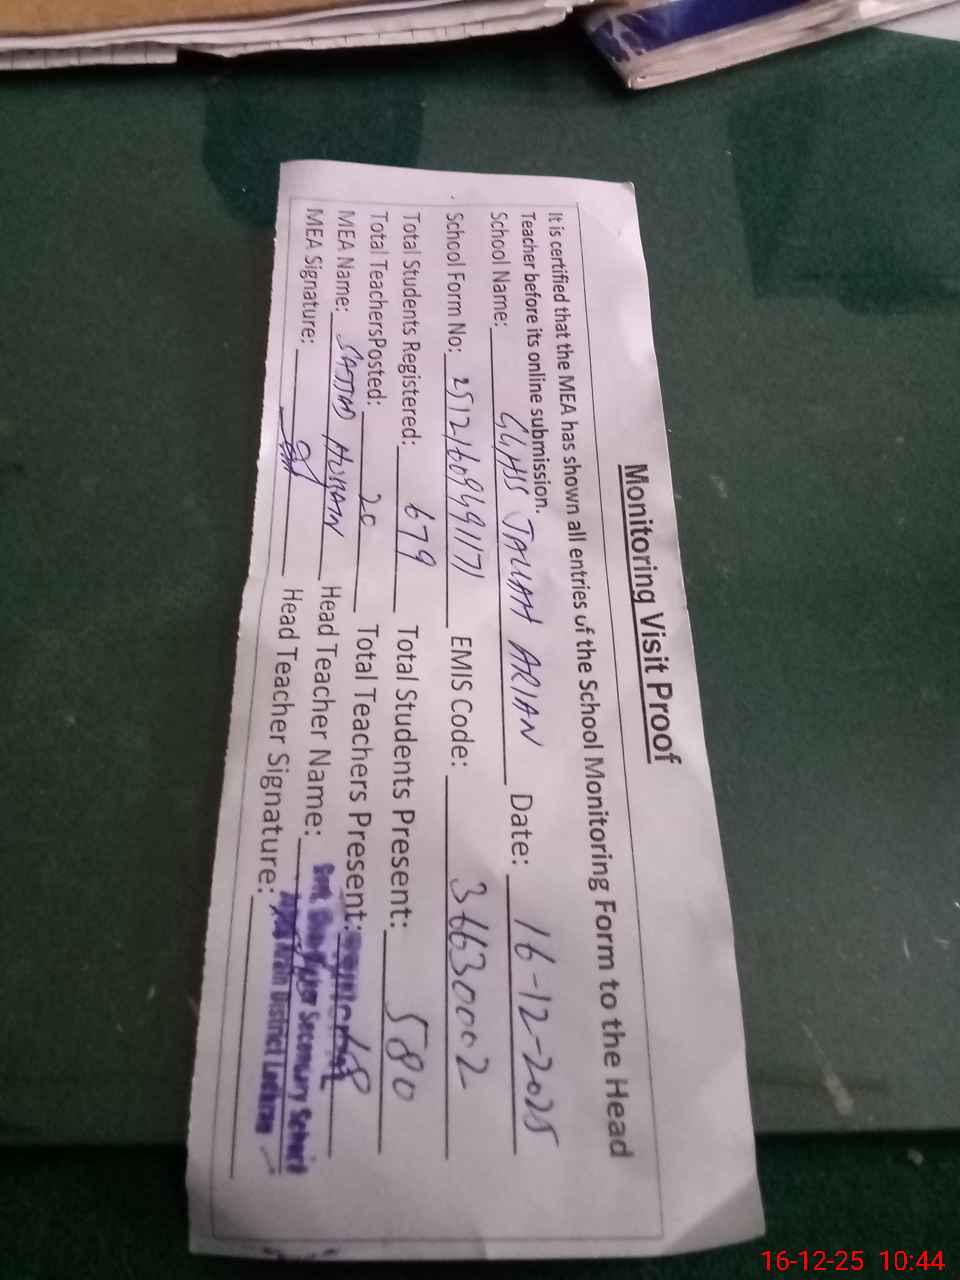 Monitoring Visit Proof
It is certified that the MEA has shown all entries of the School Monitoring Form to the Head
Teacher before its online submission.
School Name: GGHSS JALLAH ARIAN Date: 16-12-2025
School Form No: EMIS Code: 36630002
Total Students Registered: 679 Total Students Present: 580
Total TeachersPosted: 20 Total Teachers Present: 18
MEA Name: SAJJAD HUSSAIN Head Teacher Name:
MEA Signature: Head Teacher Signature:
Secondary School
District Lodhran
16-12-25 10:44